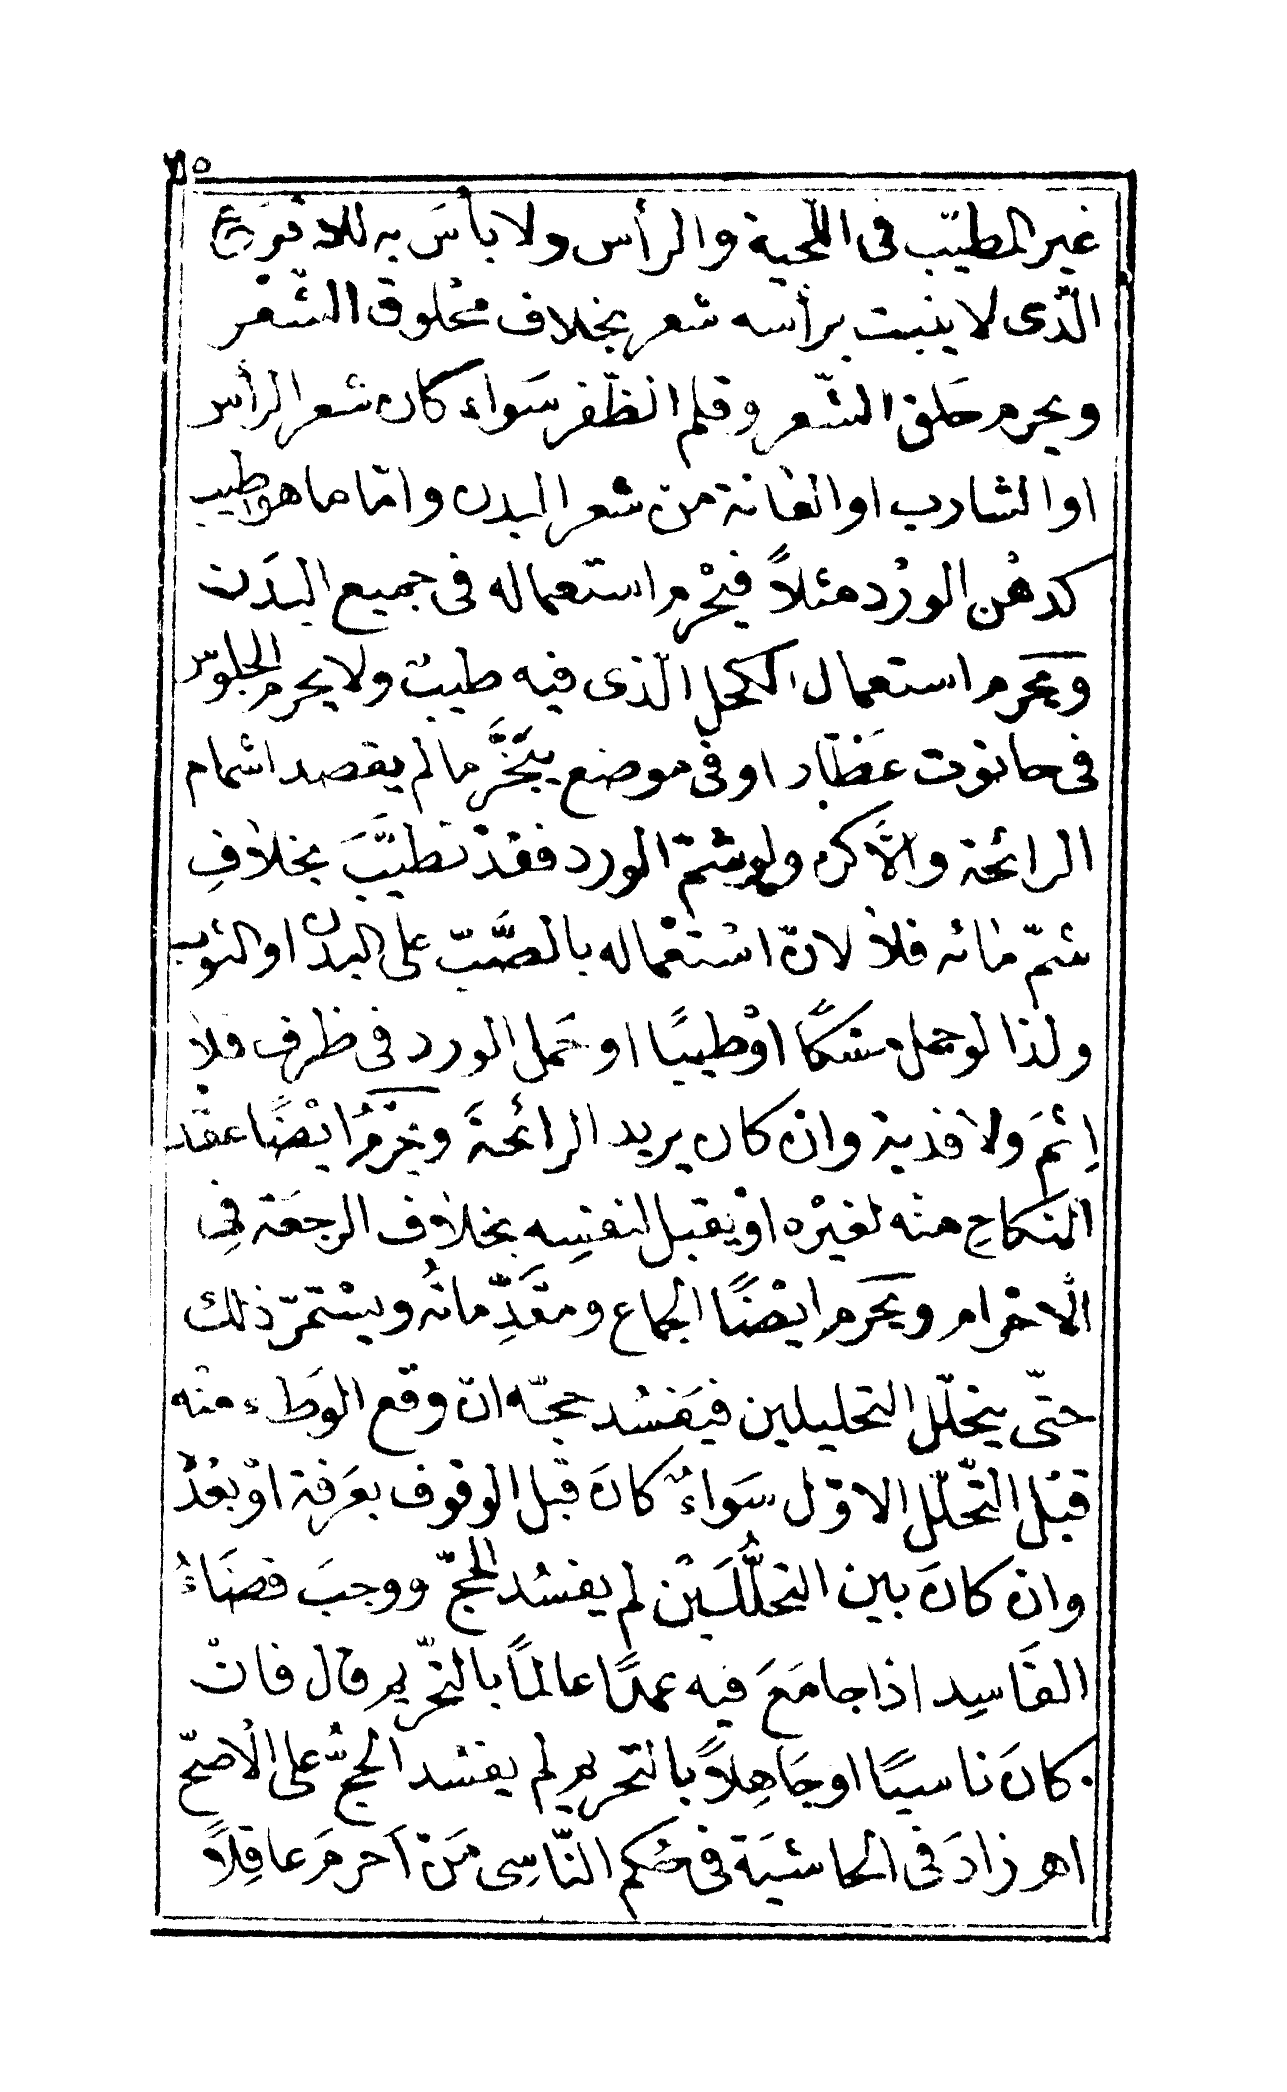 غير المطيّب فى اللّحية والرأس ولا بأسَ به للاقرَع
الّذى لا ينبت برأسه شعر بخلاف محْلوق الشّعْر
ويحرم حَلق الشّعر وقلم الظّفر سَواء كان شعر الرأس
او الشارب او العٰانة من شعر البدن وامّا ما هو طيب
كدهْن الورْد مثلاً فيحْرم استعماله فى جميع البدَن
ويحرم استعمال الكحل الّذى فيه طيبٌ ولا يحرم الجلوس
فى حانوت عَطّار او فى موضع يتَبخَّر ما لم يقصد اشمام
الرائحة والّا كره ولو شمّ الورد فقدْ تطيَّبَ بخلافِ
شمّ مٰائه فلاٰ لانّ استعْماله بالصَّبّ على البدن او الثوب
ولذا لو حمل مسْكًا اوْ طيبًا او حَمل الورد فى ظرف فلاٰ
اِثمَ ولاٰ فدية وان كان يريد الرائحةَ ويحْرمُ ايْضًا عقْد
النكاحِ منْه لغيْره اوْ يقبل لنفسِه بخلاٰف الرجعَة فِى
الاحْرام ويحَرم ايْضًا الجماع ومقَدِّماتُه ويسْتمرّ ذلك
حتّى يتحلّل التحليلين فيَفسُد حجّه انْ وقع الوَطء منْه
قبْل التّحلّل الاوّل سَواءٌ كانَ قبْل الوقوف بعَرفة اوْ بعْدُ
وانْ كانَ بين التحلُّلَيْن لم يفسُد الحجّ ووجبَ قضَاءُ
الفَاسِد اذا جامَعَ فيه عمدًا عالمًا بالتحْريم قال فانْ
كانَ ناسيًا او جَاهِلاً بالتحريم لم يفسُد الحجُّ على الْاصحّ
اهـ زادَ فى الحاشيَة فى حُكم النّاسِى مَنْ اَحرمَ عاقِلاً